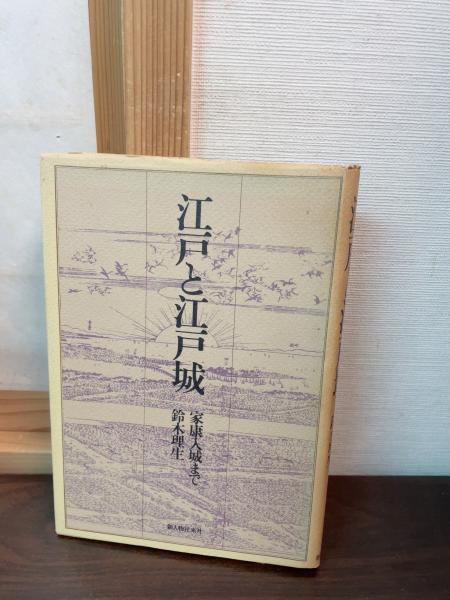 江戸と江戸城
家康入城まで
鈴木理生
新人物往来社